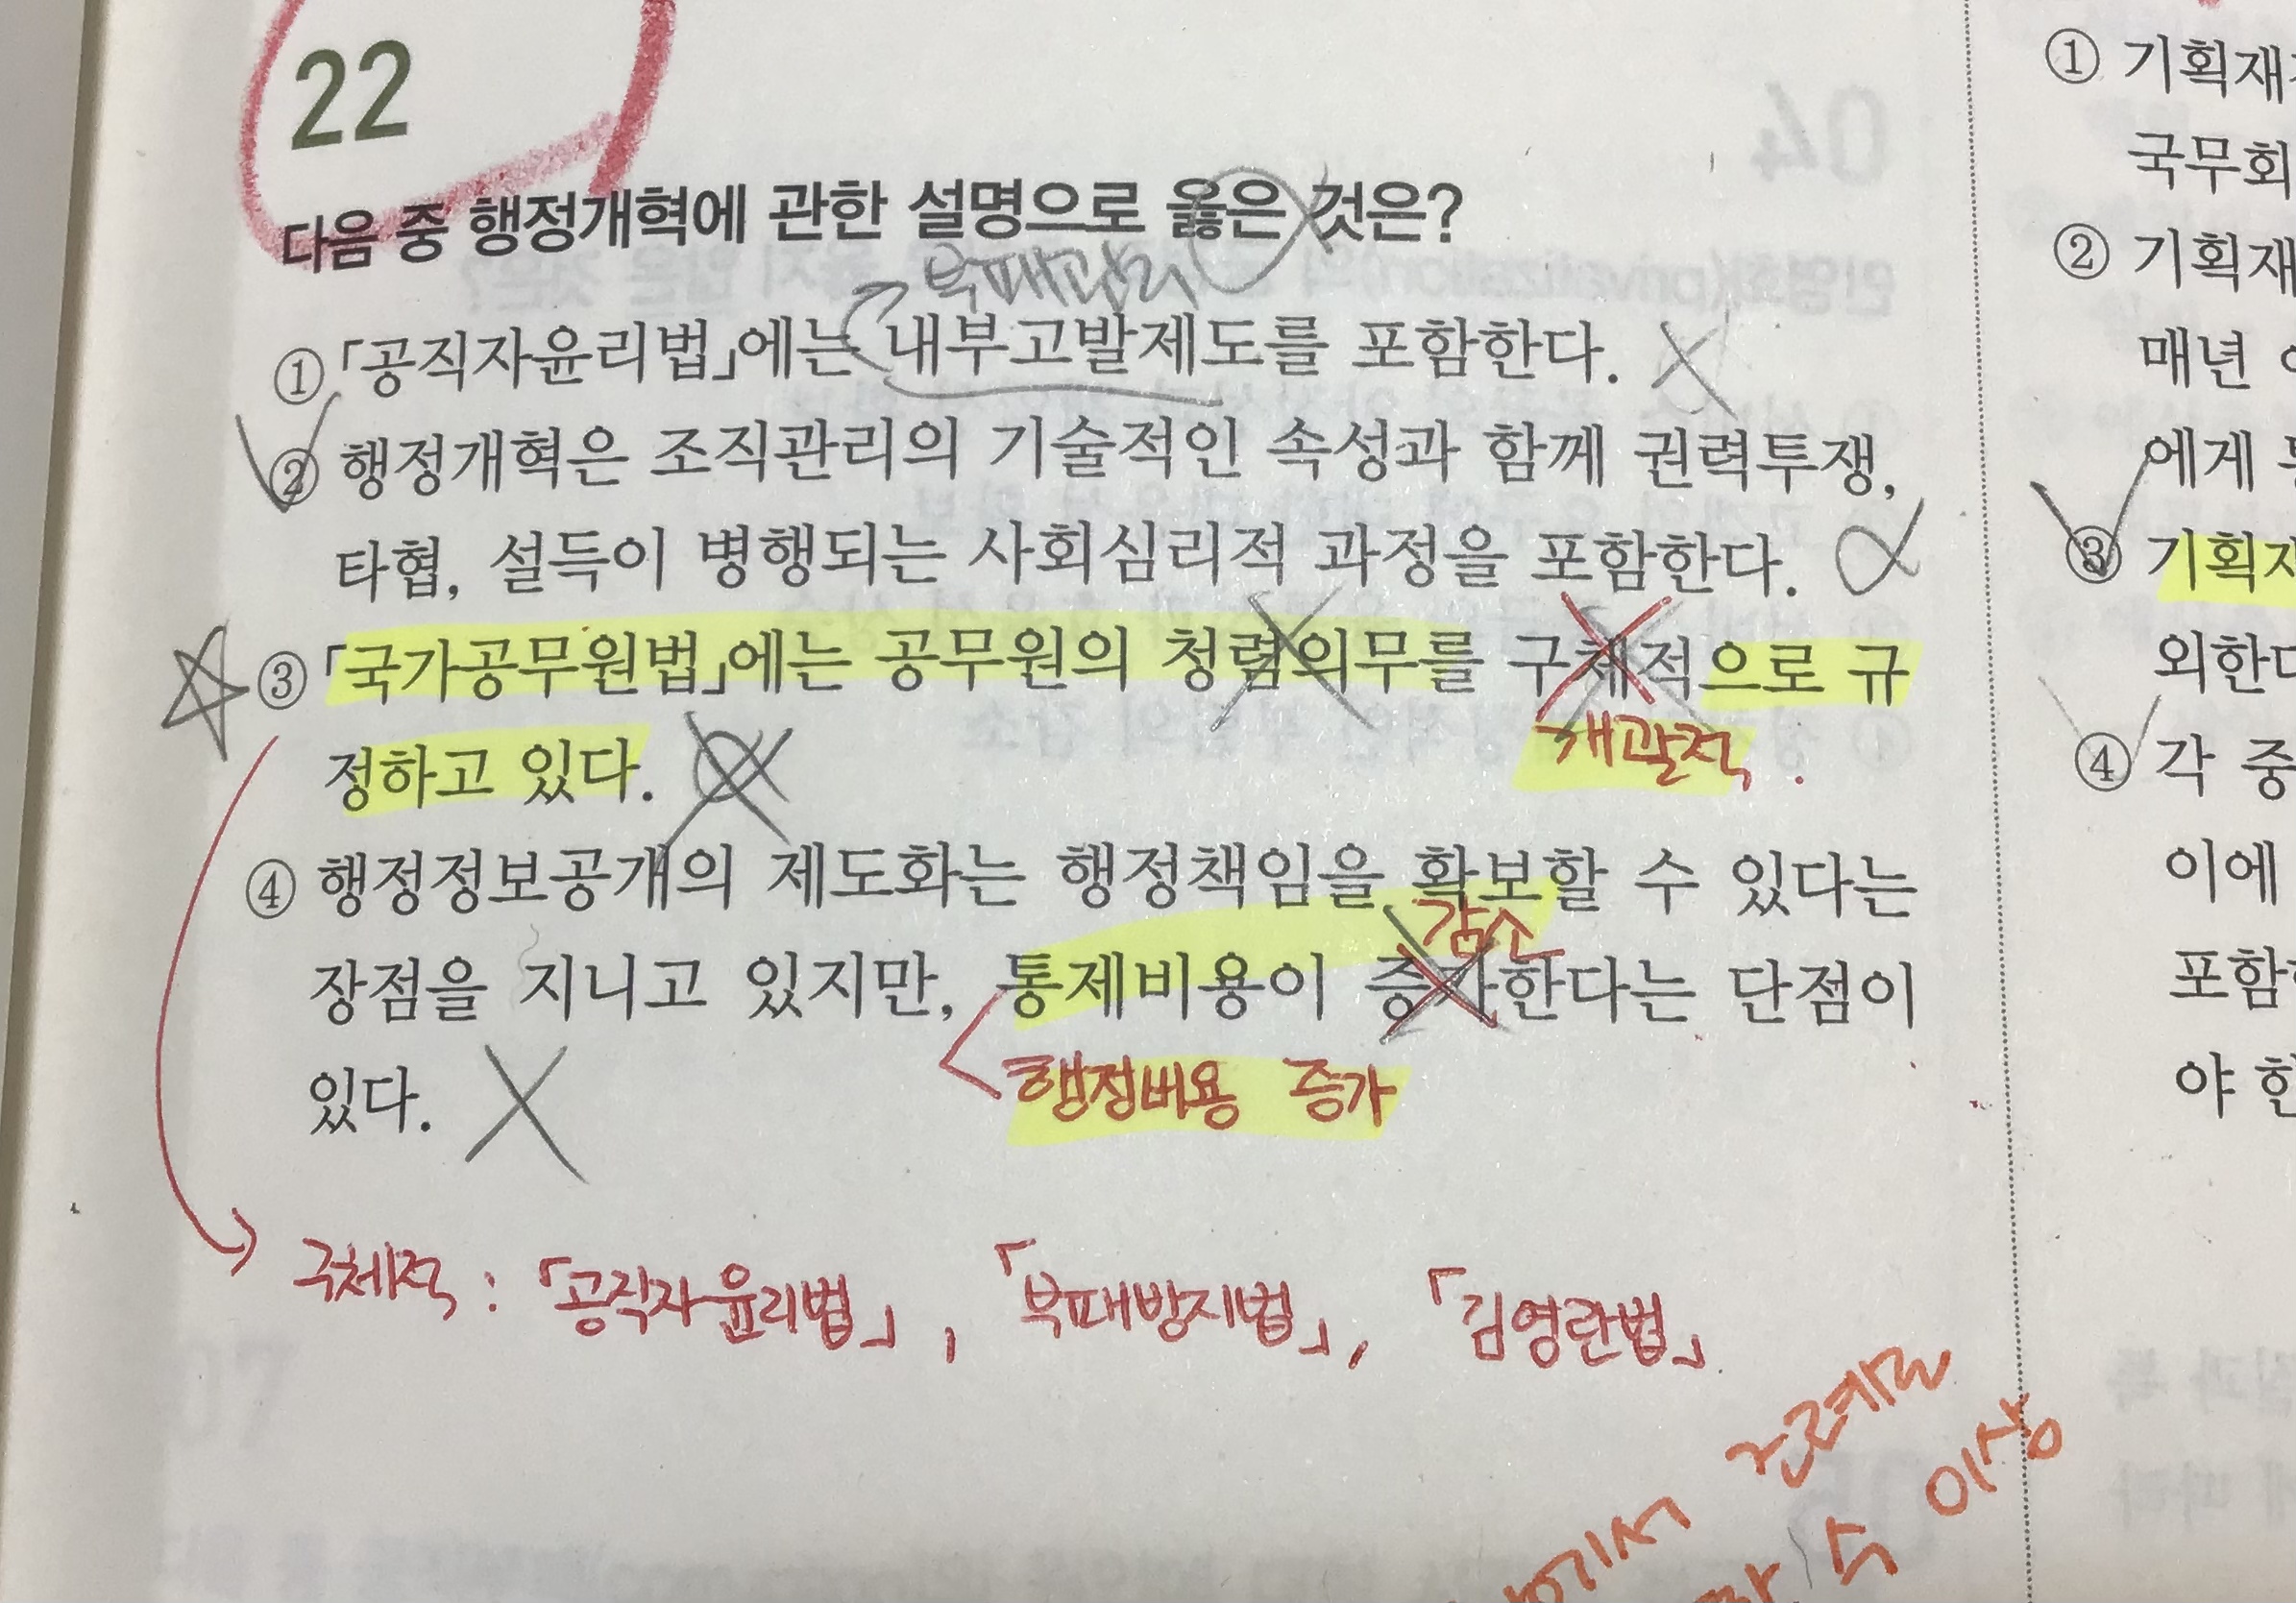 22
다음 중 행정개혁에 관한 설명으로 옳은 것은?
① 「공직자윤리법」에는 내부고발제도를 포함한다.
② 행정개혁은 조직관리의 기술적인 속성과 함께 권력투쟁,
타협, 설득이 병행되는 사회심리적 과정을 포함한다.
③ 「국가공무원법」에는 공무원의 청렴의무를 구체적으로 규
개괄적
정하고 있다.
④ 행정정보공개의 제도화는 행정책임을 확보할 수 있다는
감소
장점을 지니고 있지만, 통제비용이 증가한다는 단점이
행정비용 증가
있다.
구체적 : 「공직자윤리법」, 「부패방지법」, 「김영란법」
이상
① 기획재
국무회
② 기획재
매년
에게
③ 기획재
외한다
④ 각 중
이에
포함
야 한